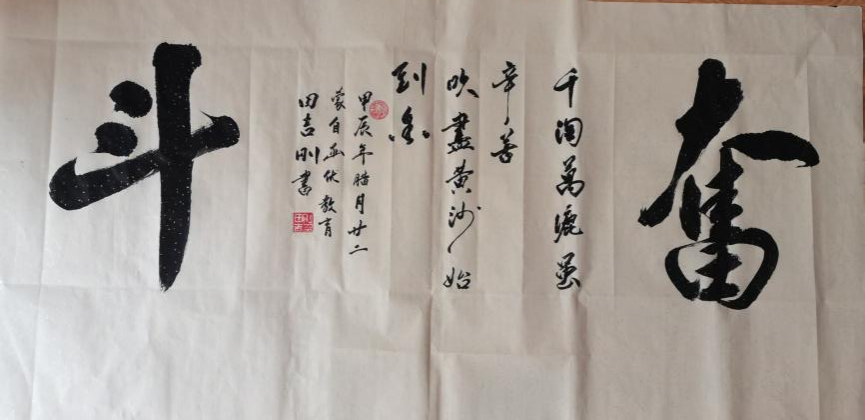 奮
千淘萬漉虽
辛苦
吹盡黄沙始
到金
甲辰年腊月廿二
蒙自教育
田吉刚書
斗